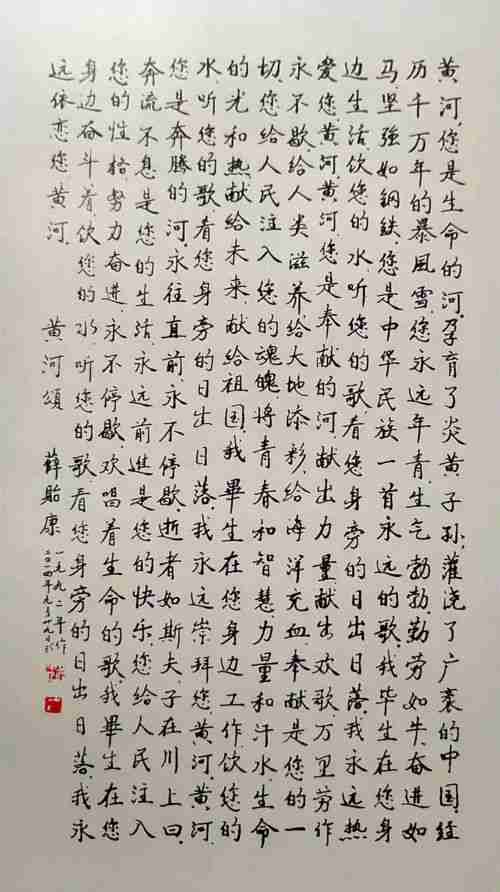 黄河,您是生命的河,孕育了炎黄子孙,灌浇了广袤的中国,经
历千万年的暴風雪,您永远年青,生气勃勃,勤劳如牛,奋进如
马,坚强如钢铁,您是中华民族一首永远的歌,我毕生在您身
边生活,饮您的水,听您的歌,看您身旁的日出日落,我永远热
爱您,黄河,黄河,您是奉献的河,献出力量,献出欢歌,万里劳作
永不歇,给人类滋养,给大地添彩,给海洋充血,奉献是您的一
切,您给人民注入您的魂魄,将青春和智慧力量和汗水,生命
的光和热献给未来,献给祖国,我畢生在您身边工作,饮您的
水,听您的歌,看您身旁的日出日落,我永远崇拜您,黄河,黄河
您是奔腾的河,永往直前,永不停歇,逝者如斯夫,子在川上曰,
奔流不息是您的生活,永远前进是您的快乐,您给人民注入
您的性格,努力奋进,永不停歇,欢唱着生命的歌,我畢生在您
身边奋斗着,饮您的水,听您的歌,看您身旁的日出日落,我永
远依恋您,黄河. 黄河頌 薛贻康
一九九二年作
二〇一四年九月